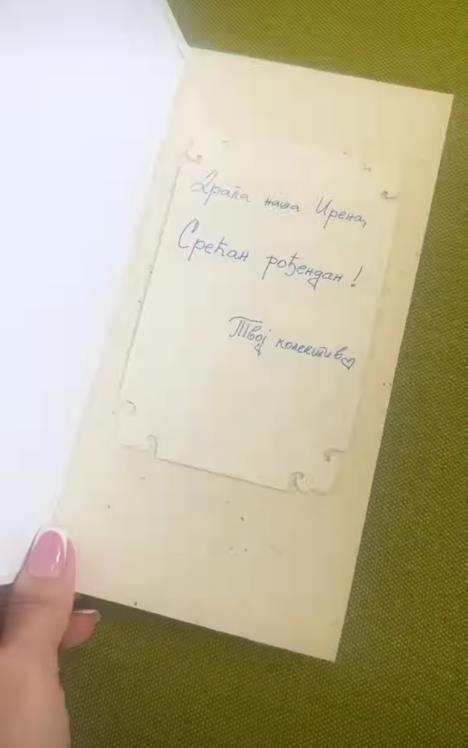 Драга наша Ирена,
Срећан рођендан!
Твој колектив♡